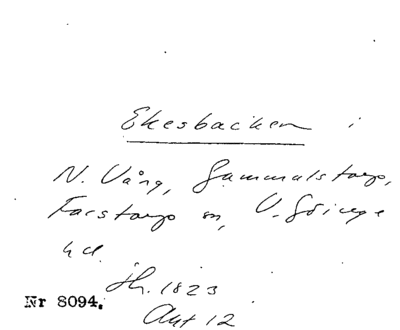 Ekesbacken i
N. Vång, Gammalstorp,
Farstorp sn, V. Göinge
hd.
Jh. 1823
Akt 12
Nr 8094.